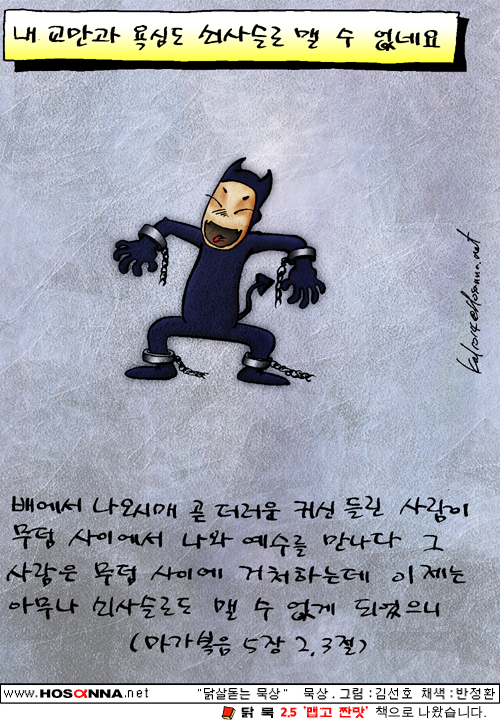 내 교만과 욕심도 쇠사슬로 맬 수 없네요
배에서 나오시매 곧 더러운 귀신 들린 사람이
무덤 사이에서 나와 예수를 만나다 그
사람은 무덤 사이에 거처하는데 이제는
아무나 쇠사슬로도 맬 수 없게 되었으니
(마가복음 5장 2, 3절)
www.HOSANNA.net "닭살돋는 묵상" 묵상. 그림 : 김선호 채색 : 반정환
닭 묵 2.5 '맵고 짠맛' 책으로 나왔습니다.